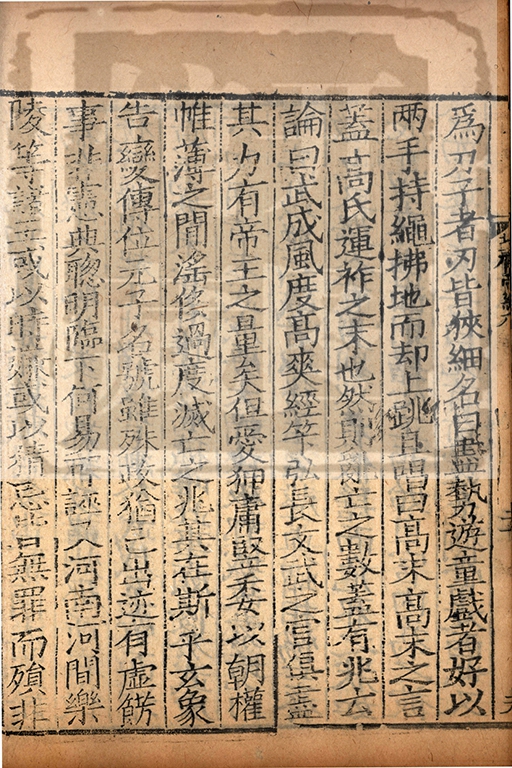 為刀子者刃皆狹細名曰盡勢遊童戲者好以
两手持繩拂地而却上跳且唱曰高末高末之言
蓋高氏運祚之末也然則亂亡之數蓋有兆云
論曰武成風度高爽經筭弘長文武之官俱盡
其力有帝王之量矣但愛狎庸豎委以朝權
帷薄之間淫侈過度滅亡之兆其在斯乎玄象
告變傳位元子名號雖殊政猶己出迹有虛飾
事非憲典聰明臨下何易可誣又河南河間樂
陵等諸王或以時嫌或以猜忌皆無罪而殞非